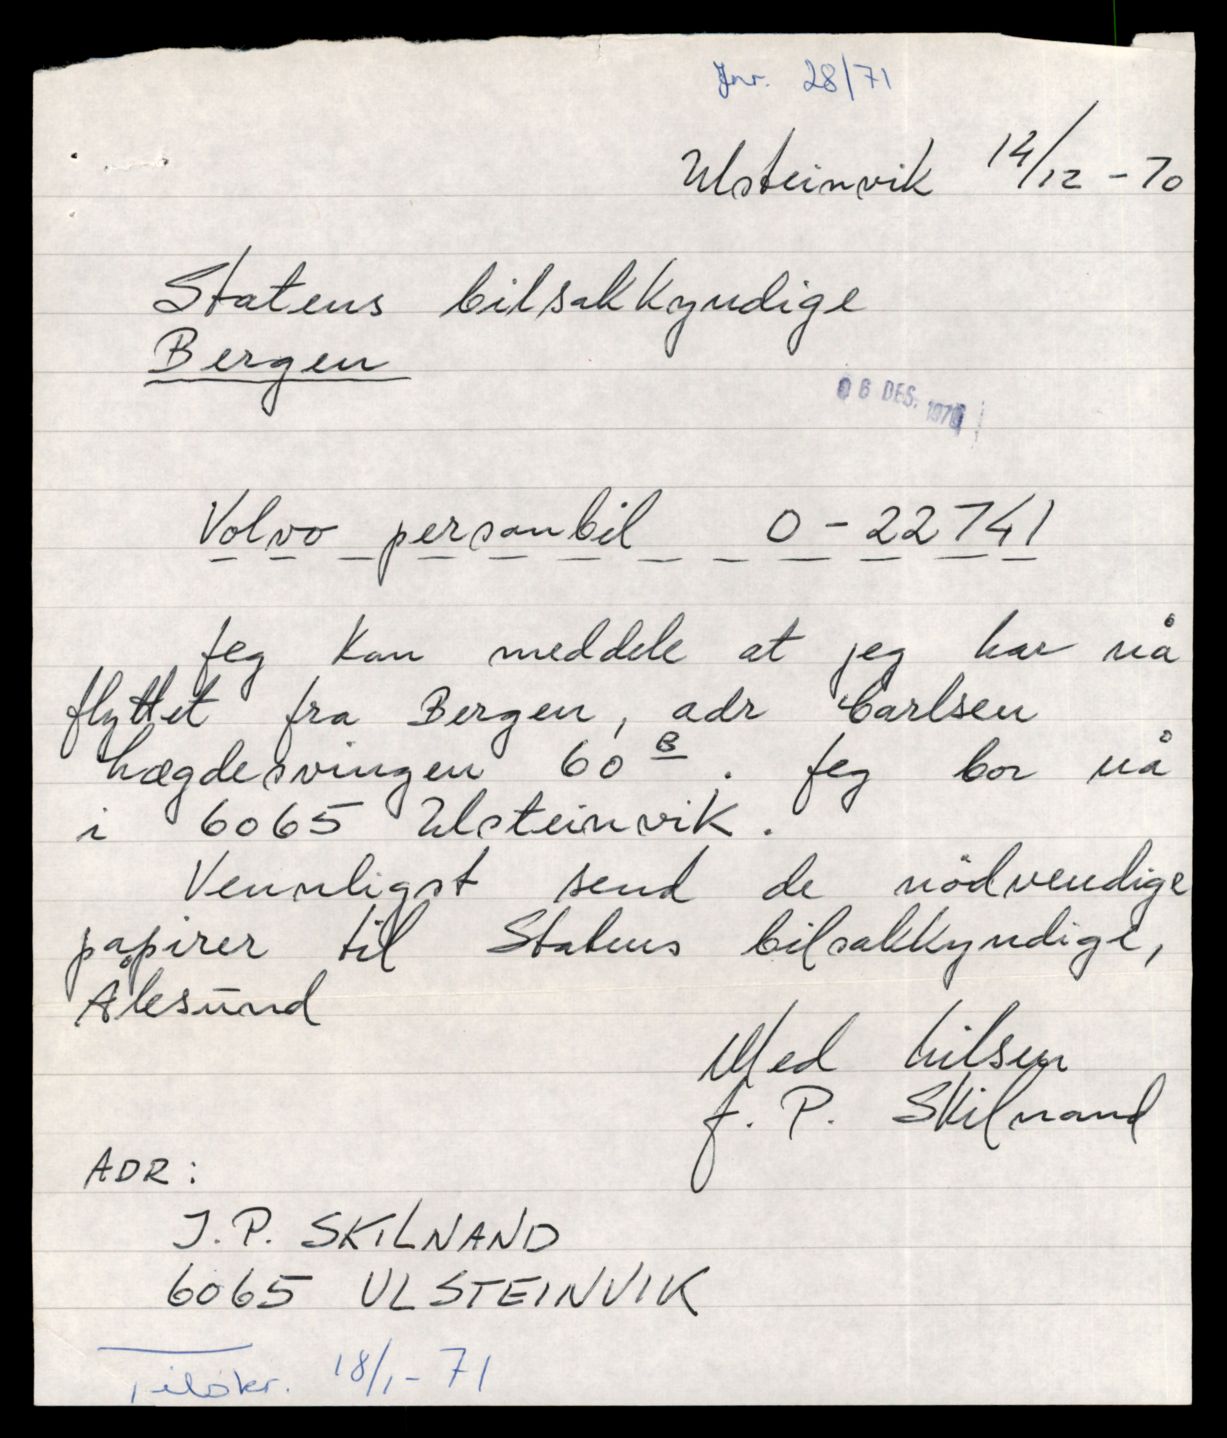 Jnr. 28/71
Ulsteinvik 14/12 - 70
Statens bilsakkyndige
Bergen
DES. 197
Volvo personbil O - 22741
Jeg kan meddele at jeg har nå
flyttet fra Bergen, adr Carlsen
hægdesvingen 60 B. Jeg bor nå
i 6065 Ulsteinvik.
Vennligst send de nödvendige
papirer til Statens bilsakkyndige,
Ålesund
Med hilsen
J. P. Skilnand
ADR:
J. P. SKILNAND
6065 ULSTEINVIK
Tilskr. 18/1 - 71